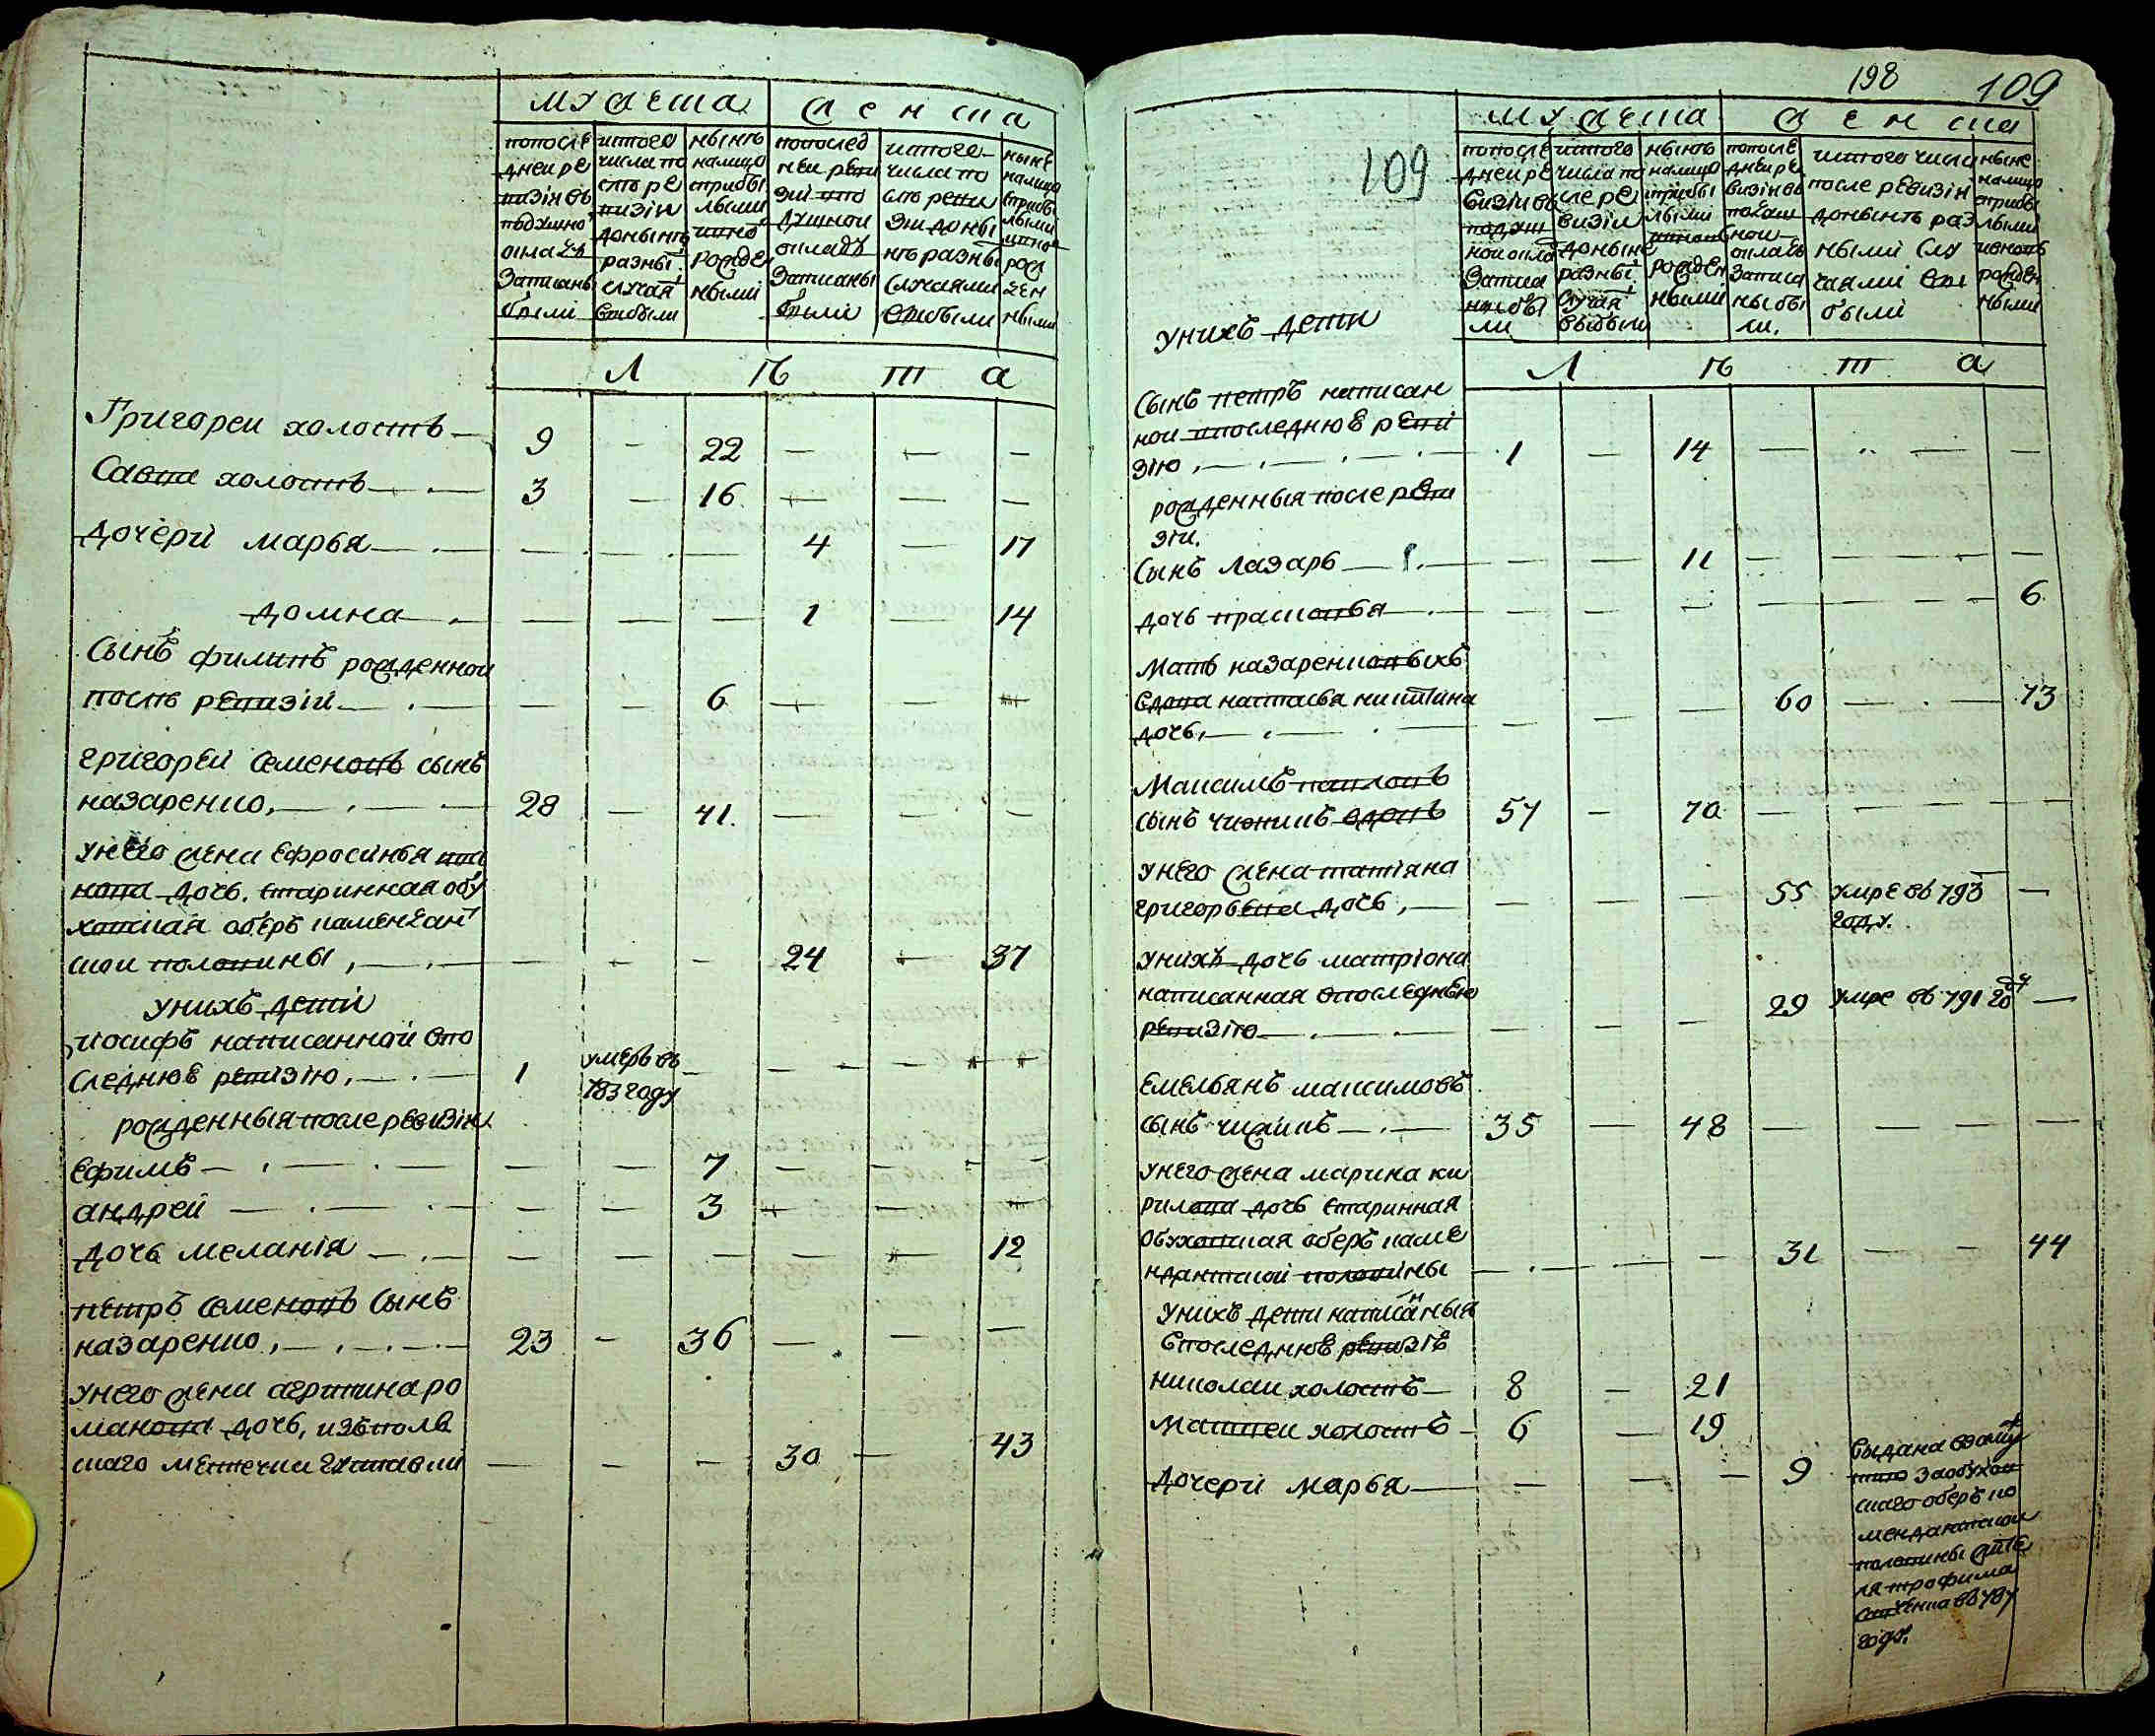 мужеска
женска
попосле
дней ре
визій въ
подушно
окладъ
записаны
были
ис того
числа по
слѣ ре
визіи
до нынѣ
разны
случая
выбыли
нынѣ
на лицо
с прибы
лыми
и ново
рожден
ными
по послед
ней реви
зіи в по
душной
окладъ
записаны
были
ис того
числа по
слѣ реви
зіи до ны
нѣ разны
случаями
выбыли
нынѣ
на лицо
с прибы
лыми
и ново
рож
ден
ными
Лѣта
Григореи холостъ — 9 — 22 — — —
Савва холостъ — 3 — 16 — — —
дочери марья — — — — 4 — 17
домна — — — — 1 — 14
Сынъ филипъ рожденной
послѣ ревизіи — — — 6 — — —
григорей Семеновъ сынъ
назаренко, — 28 — 41. — — —
у него жена Ефросинья
дочь. старинная обу
ховская оберъ каменѣдан
ской половины, — — — — 24 — 37
у нихъ дети
иосифъ написанной впо
следнюю ревизію, — 1 умеръ въ
783 году — — — —
рожденныя после ревизіи
Ефимъ — — — 7 — — —
андрей — — — 3 — — —
дочь меланія — — — — — — 12
петръ Семеновъ Сынъ
назаренко, — 23 — 36 — — —
у него жена агрипина ро
манова дочь, изъ поль
скаго местечка — — — — 30 — 43
198 109
109
мужеска
женска
по после
дней ре
визіи въ
подуш
ной окла
записа
ны бы
ли
ис того
числа по
сле ре
визіи
до нынѣ
разны
случая
выбыли
нынѣ
на лицо
с прибы
лыми
и ново
рожден
ными
по после
дней ре
визіи въ
окладъ
записа
ны бы
ли.
ис того числа
после ревизіи
до нынѣ раз
ными слу
чаями вы
были
ныне
на лицо
с прибы
лыми
и новь
рожден
ными
Лѣта
у нихъ дети
Сынъ петръ написан
ной в последнюю реви
зію, — 1 — 14 — — —
рожденныя после реви
зіи.
Сынъ Лазарь — — — 11 — — —
дочь прасковья — — — — — — 6
Мать назаренковыхъ
вдова настасья никитина
дочь, — — — — 60 — 73
Максимъ павловъ
сынъ чижикъ вдовъ 57 — 70 — — —
у него жена татіяна
григорьева дочь, — — — — 55 умре въ 793 —
году.
у нихъ дочь матріона
написанная в последнюю
ревизію — — — — 29 умре въ 791 году —
Емельянъ максимовъ
сынъ чижикъ — 35 — 48 — — —
у него жена марина ки
рилова дочь старинная
обуховская оберъ каме
ндантской половины — — — — 31 — 44
у нихъ дети написаныя
в последнюю ревизіе
николаи холостъ — 8 — 21
Матвеи холостъ — 6 — 19
Дочери марья — — — — 9 выдана в заму
жество за обухов
скаго оберъ ко
мендантской
половины жите
ля трофима
Савченка въ 787
годѣ.